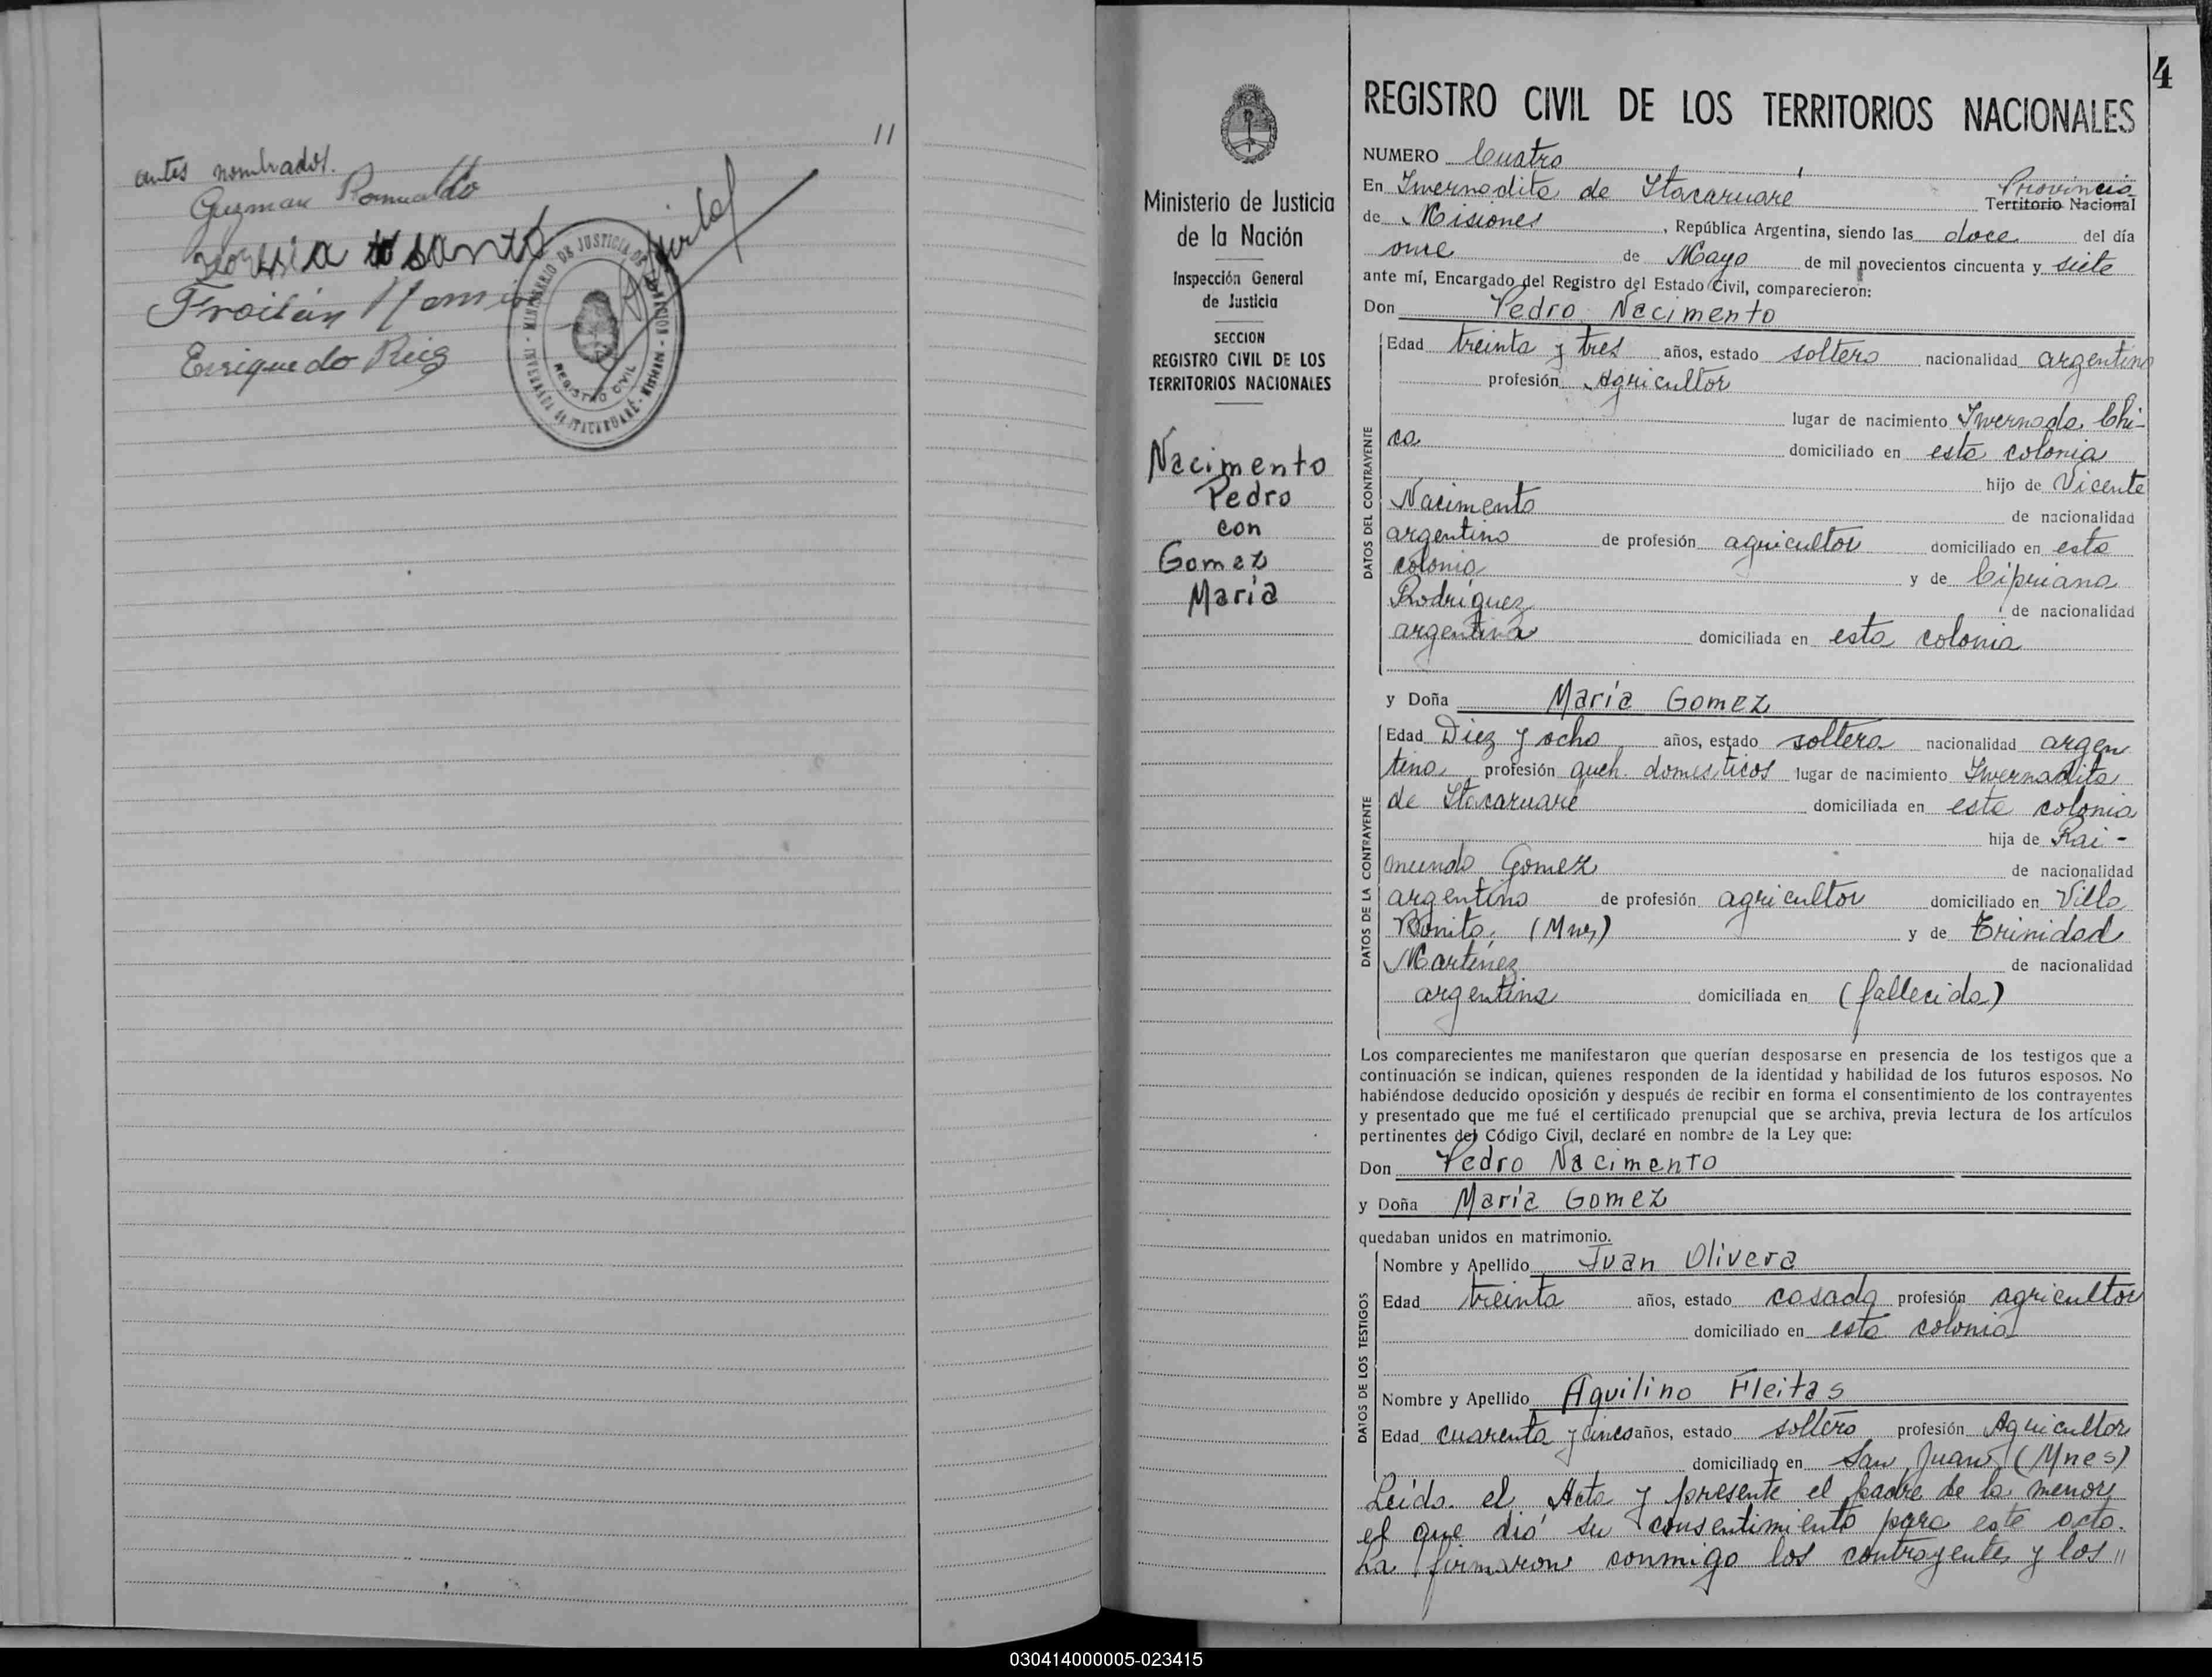 11
antes nombrados.
Guzman Romualdo
santo
Froilán
Enrique do
MINISTERIO DE JUSTICIA DE LA NACION
REGISTRO CIVIL
INVERNADA DE ITACARUARÉ - MISIONES
4
Ministerio de Justicia
de la Nación
Inspección General
de Justicia
SECCION
REGISTRO CIVIL DE LOS
TERRITORIOS NACIONALES
Nacimento
Pedro
con
Gomez
María
REGISTRO CIVIL DE LOS TERRITORIOS NACIONALES
NUMERO Cuatro
En Invernadita de Itacaruaré Provincia Territorio Nacional
de Misiones, República Argentina, siendo las doce del día
once de Mayo de mil novecientos cincuenta y siete
ante mí, Encargado del Registro del Estado Civil, comparecieron:
Don Pedro Nacimento
DATOS DEL CONTRAYENTE
Edad treinta y tres años, estado soltero nacionalidad argentino
profesión Agricultor
lugar de nacimiento Invernada Chi-
ca domiciliado en esta colonia
hijo de Vicente
Nacimento de nacionalidad
argentino de profesión agricultor domiciliado en esta
colonia y de Cipriana
Rodríguez de nacionalidad
argentina domiciliada en esta colonia
y Doña María Gomez
DATOS DE LA CONTRAYENTE
Edad Diez y ocho años, estado soltera nacionalidad argen
tina profesión queh. domesticos lugar de nacimiento Invernadita
de Itacaruaré domiciliada en esta colonia
hija de Rai-
mundo Gomez de nacionalidad
argentino de profesión agricultor domiciliado en Villa
Bonita, (Mnes) y de Trinidad
Martínez de nacionalidad
argentina domiciliada en (fallecida)
Los comparecientes me manifestaron que querían desposarse en presencia de los testigos que a
continuación se indican, quienes responden de la identidad y habilidad de los futuros esposos. No
habiéndose deducido oposición y después de recibir en forma el consentimiento de los contrayentes
y presentado que me fué el certificado prenupcial que se archiva, previa lectura de los artículos
pertinentes del Código Civil, declaré en nombre de la Ley que:
Don Pedro Nacimento
y Doña María Gomez
quedaban unidos en matrimonio.
DATOS DE LOS TESTIGOS
Nombre y Apellido Juan Olivera
Edad treinta años, estado casado profesión agricultor
domiciliado en esta colonia
Nombre y Apellido Aquilino Fleitas
Edad cuarenta y cinco años, estado soltero profesión Agricultor
domiciliado en San Juan (Mnes)
Leída el Acta y presente el padre de la menor
el que dió su consentimiento para este acto.
La firmaron conmigo los contrayentes y los "
030414000005-023415